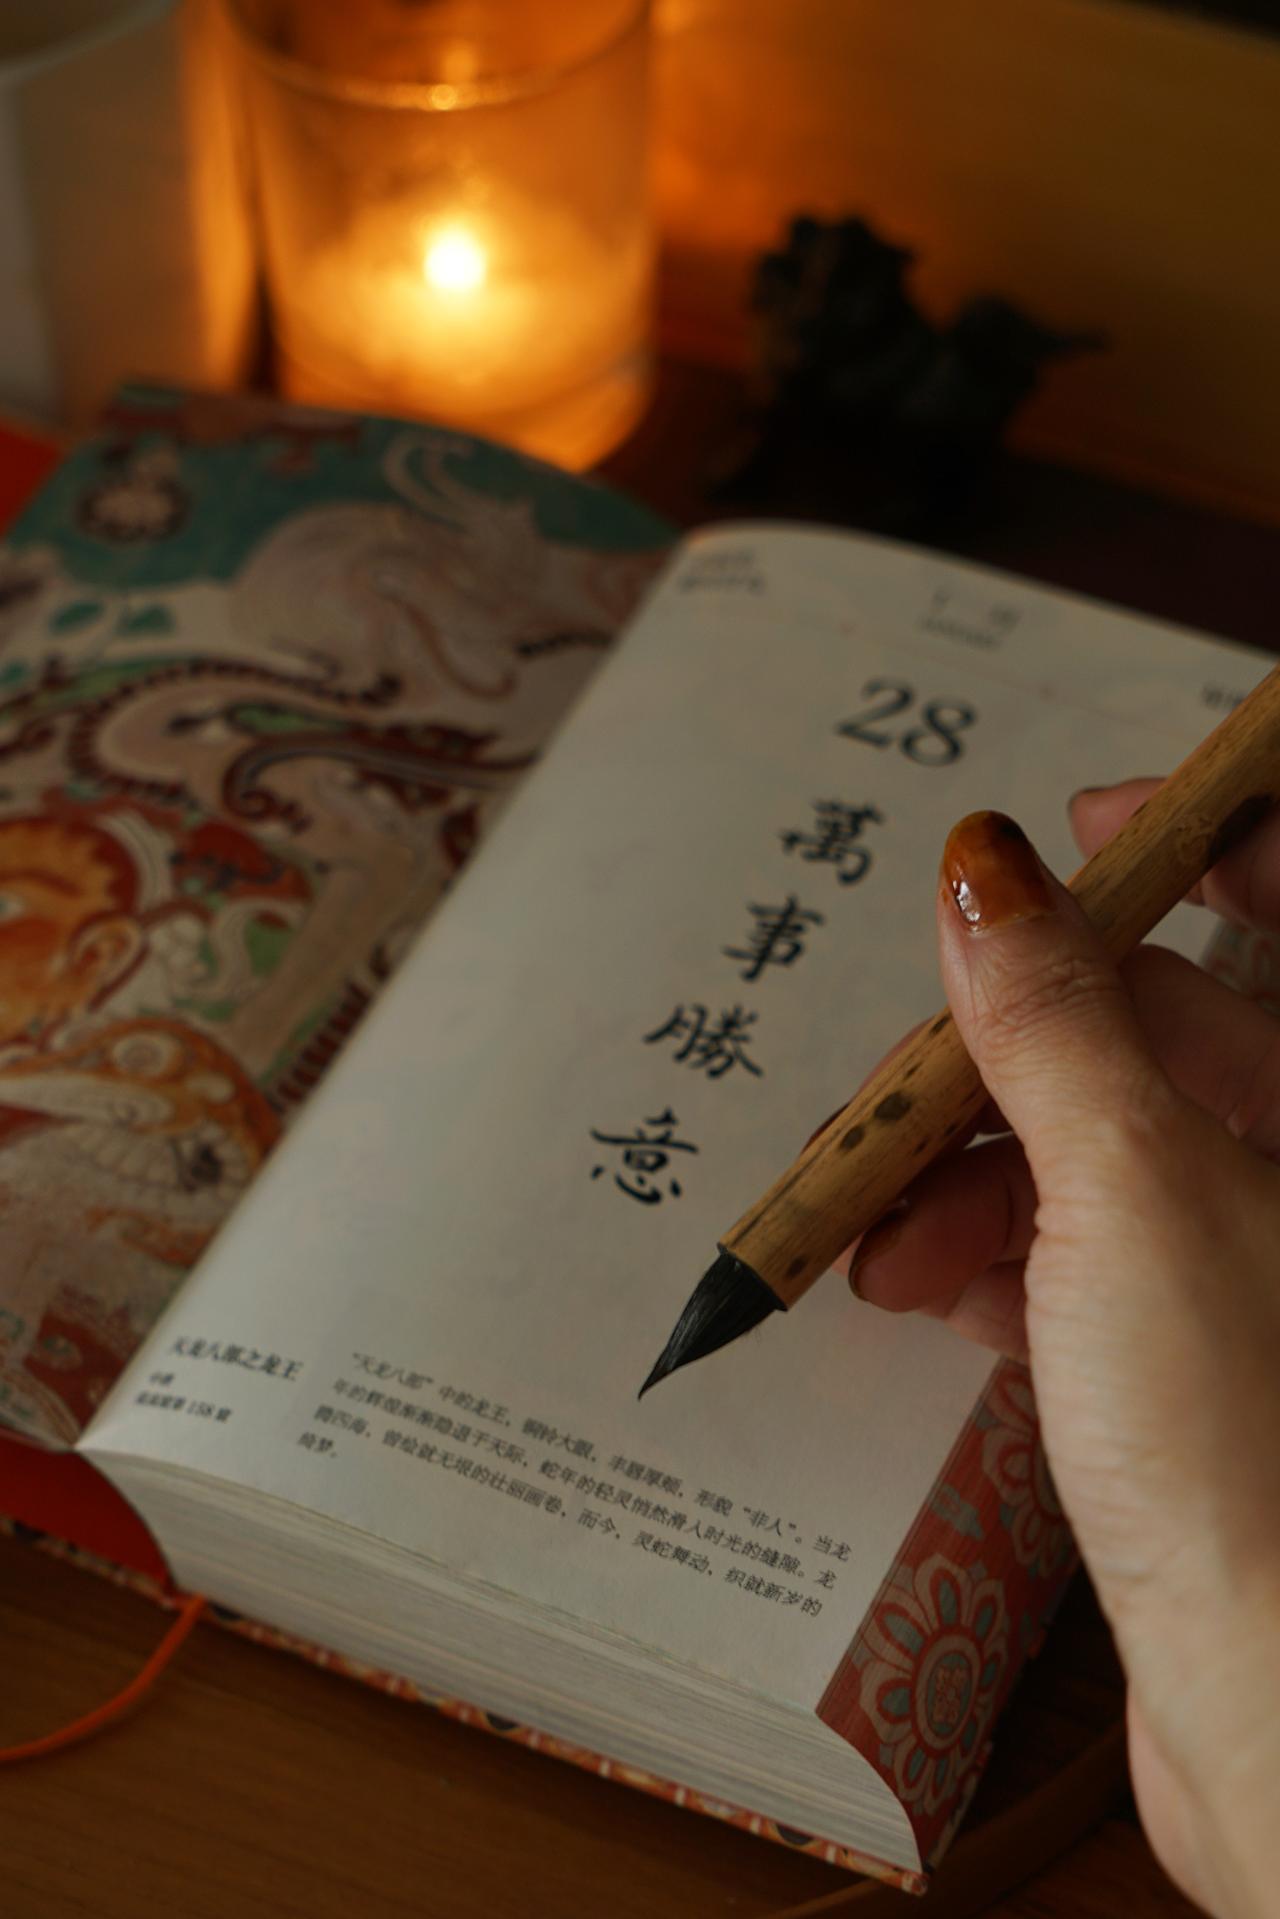 28
萬事勝意
天龙八部之龙王
中唐
莫高窟第 158 窟
“天龙八部”中的龙王，铜铃大眼，丰唇厚颊，形貌“非人”。当龙
年的辉煌渐渐隐退于天际，蛇年的轻灵悄然滑入时光的缝隙。龙
腾四海，曾绘就无垠的壮丽画卷，而今，灵蛇舞动，织就新岁的
绮梦。